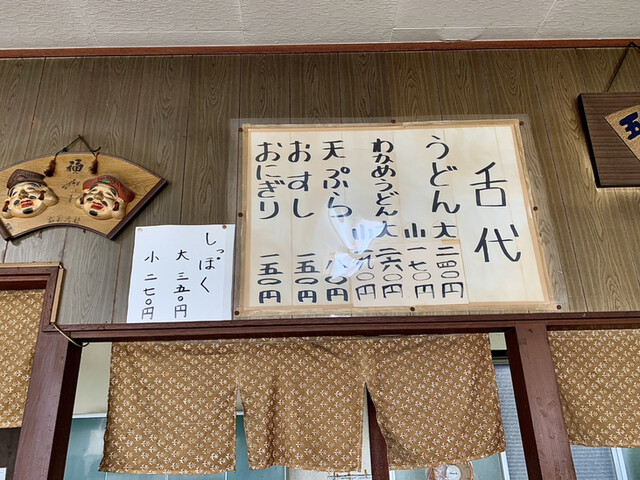 舌代
うどん 大 二四〇円
小 一七〇円
わかめうどん 大 二六〇円
小 一九〇円
天ぷら 八〇円
おすし 一五〇円
おにぎり 一五〇円
しっぽく
大 三五〇円
小 二七〇円
福
五